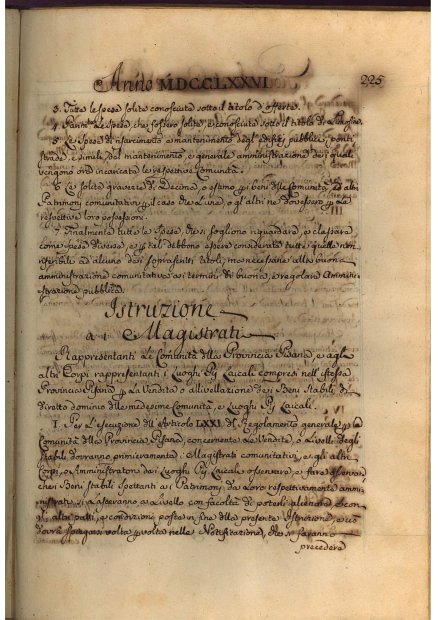 Anno MDCCLXXVI
225
3. Tutte le spese solite conosciute sotto il titolo d'offerte.
4. Parim.e le spese, che fossero solite, e conosciute sotto il titolo di
5. Le spese di risarcimento, o mantenimento degl'edifizj pubblici, ponti
strade, e simili, dal mantenimento, e generale amministrazione dei quali
vengono ora incaricate le respettive Comunità.
6. Le solite gravezze di Decima, o estimo, p i beni delle Comunità, ed altri
Patrimonj comunitativi, p il caso che l'une, o gl'altri ne dovessero p le
respettive loro possessioni.
7. Finalmente tutte le spese, che si sogliono riguardare, e classare
come spese diverse, e p tali debbono essere considerate tutte quelle non
riferibili ad alcuno dei soprascritti titoli, ma necessarie alla buona
amministrazione comunitativa ai termini di buona, e regolare Ammini=
strazione pubblica.
Istruzione
a i Magistrati
Rappresentanti le Comunità della Provincia Pisana, e agli
altri Corpi rappresentanti i Luoghi Pij Laicali compresi nell'istessa
Provincia Pisana p la Vendita, o allivellazione dei Beni Stabili di
diretto dominio delle medesime Comunità, e Luoghi Pij Laicali.
I. Per l'esecuzione dell'Articolo LXXI. del Regolamento generale p le
Comunità della Provincia Pisana, concernente la Vendita, o Livello degli
stabili, dovranno primieramente i Magistrati comunitativi, e gli altri
Corpi, o Amministratori dei Luoghi Pij Laicali osservare, e fare osservare
che i Beni stabili spettanti ai Patrimonj da loro respettivamente ammi=
nistrati, si rilasceranno a Livello con facoltà di poterli alienare, e con
gli altri patti, e condizioni poste in fine della presente Istruzione, e ciò
dovrà spiegarsi volta p volta nelle Notificazioni, che si faranno
precedere